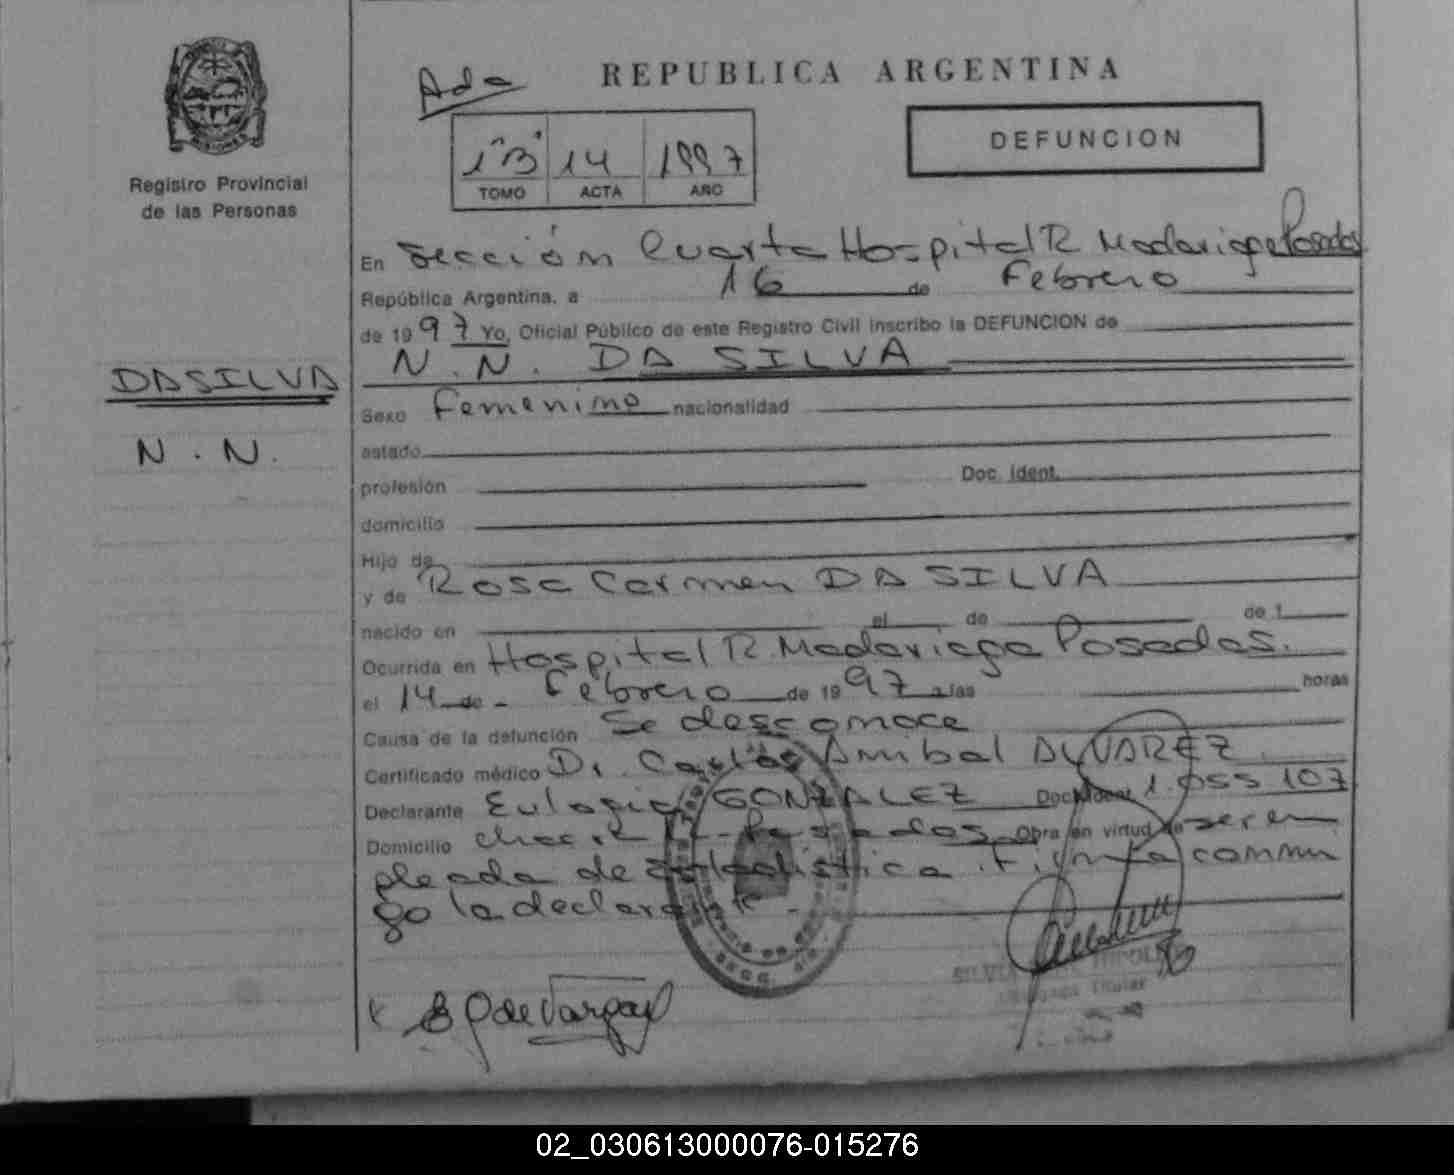 Ada
REPUBLICA ARGENTINA
1"B" 14 1997
TOMO ACTA AÑO
DEFUNCION
MISIONES
Registro Provincial
de las Personas
En Sección Cuarta Hospital R Madariaga Posadas
República Argentina, a 16 de Febrero
de 1997 Yo, Oficial Público de este Registro Civil inscribo la DEFUNCION de
N. N. DA SILVA
DA SILVA
N. N.
Sexo Femenino nacionalidad
estado
profesión Doc. Ident.
domicilio
Hijo de
y de Rosa Carmen DA SILVA
nacido en el de de 1
Ocurrida en Hospital R. Madariaga Posadas.
el 14 de Febrero de 1997 a las horas
Causa de la defunción Se desconoce
Certificado médico Dr. Carlos Anibal ALVAREZ
Declarante Eulogia GONZALEZ Doc. Ident 1.055 107
Domicilio Posadas Obra en virtud de ser em
pleada de estadística. Firma conmi
go la declarante.
de Vargas
SILVIA
Titular
02_030613000076-015276